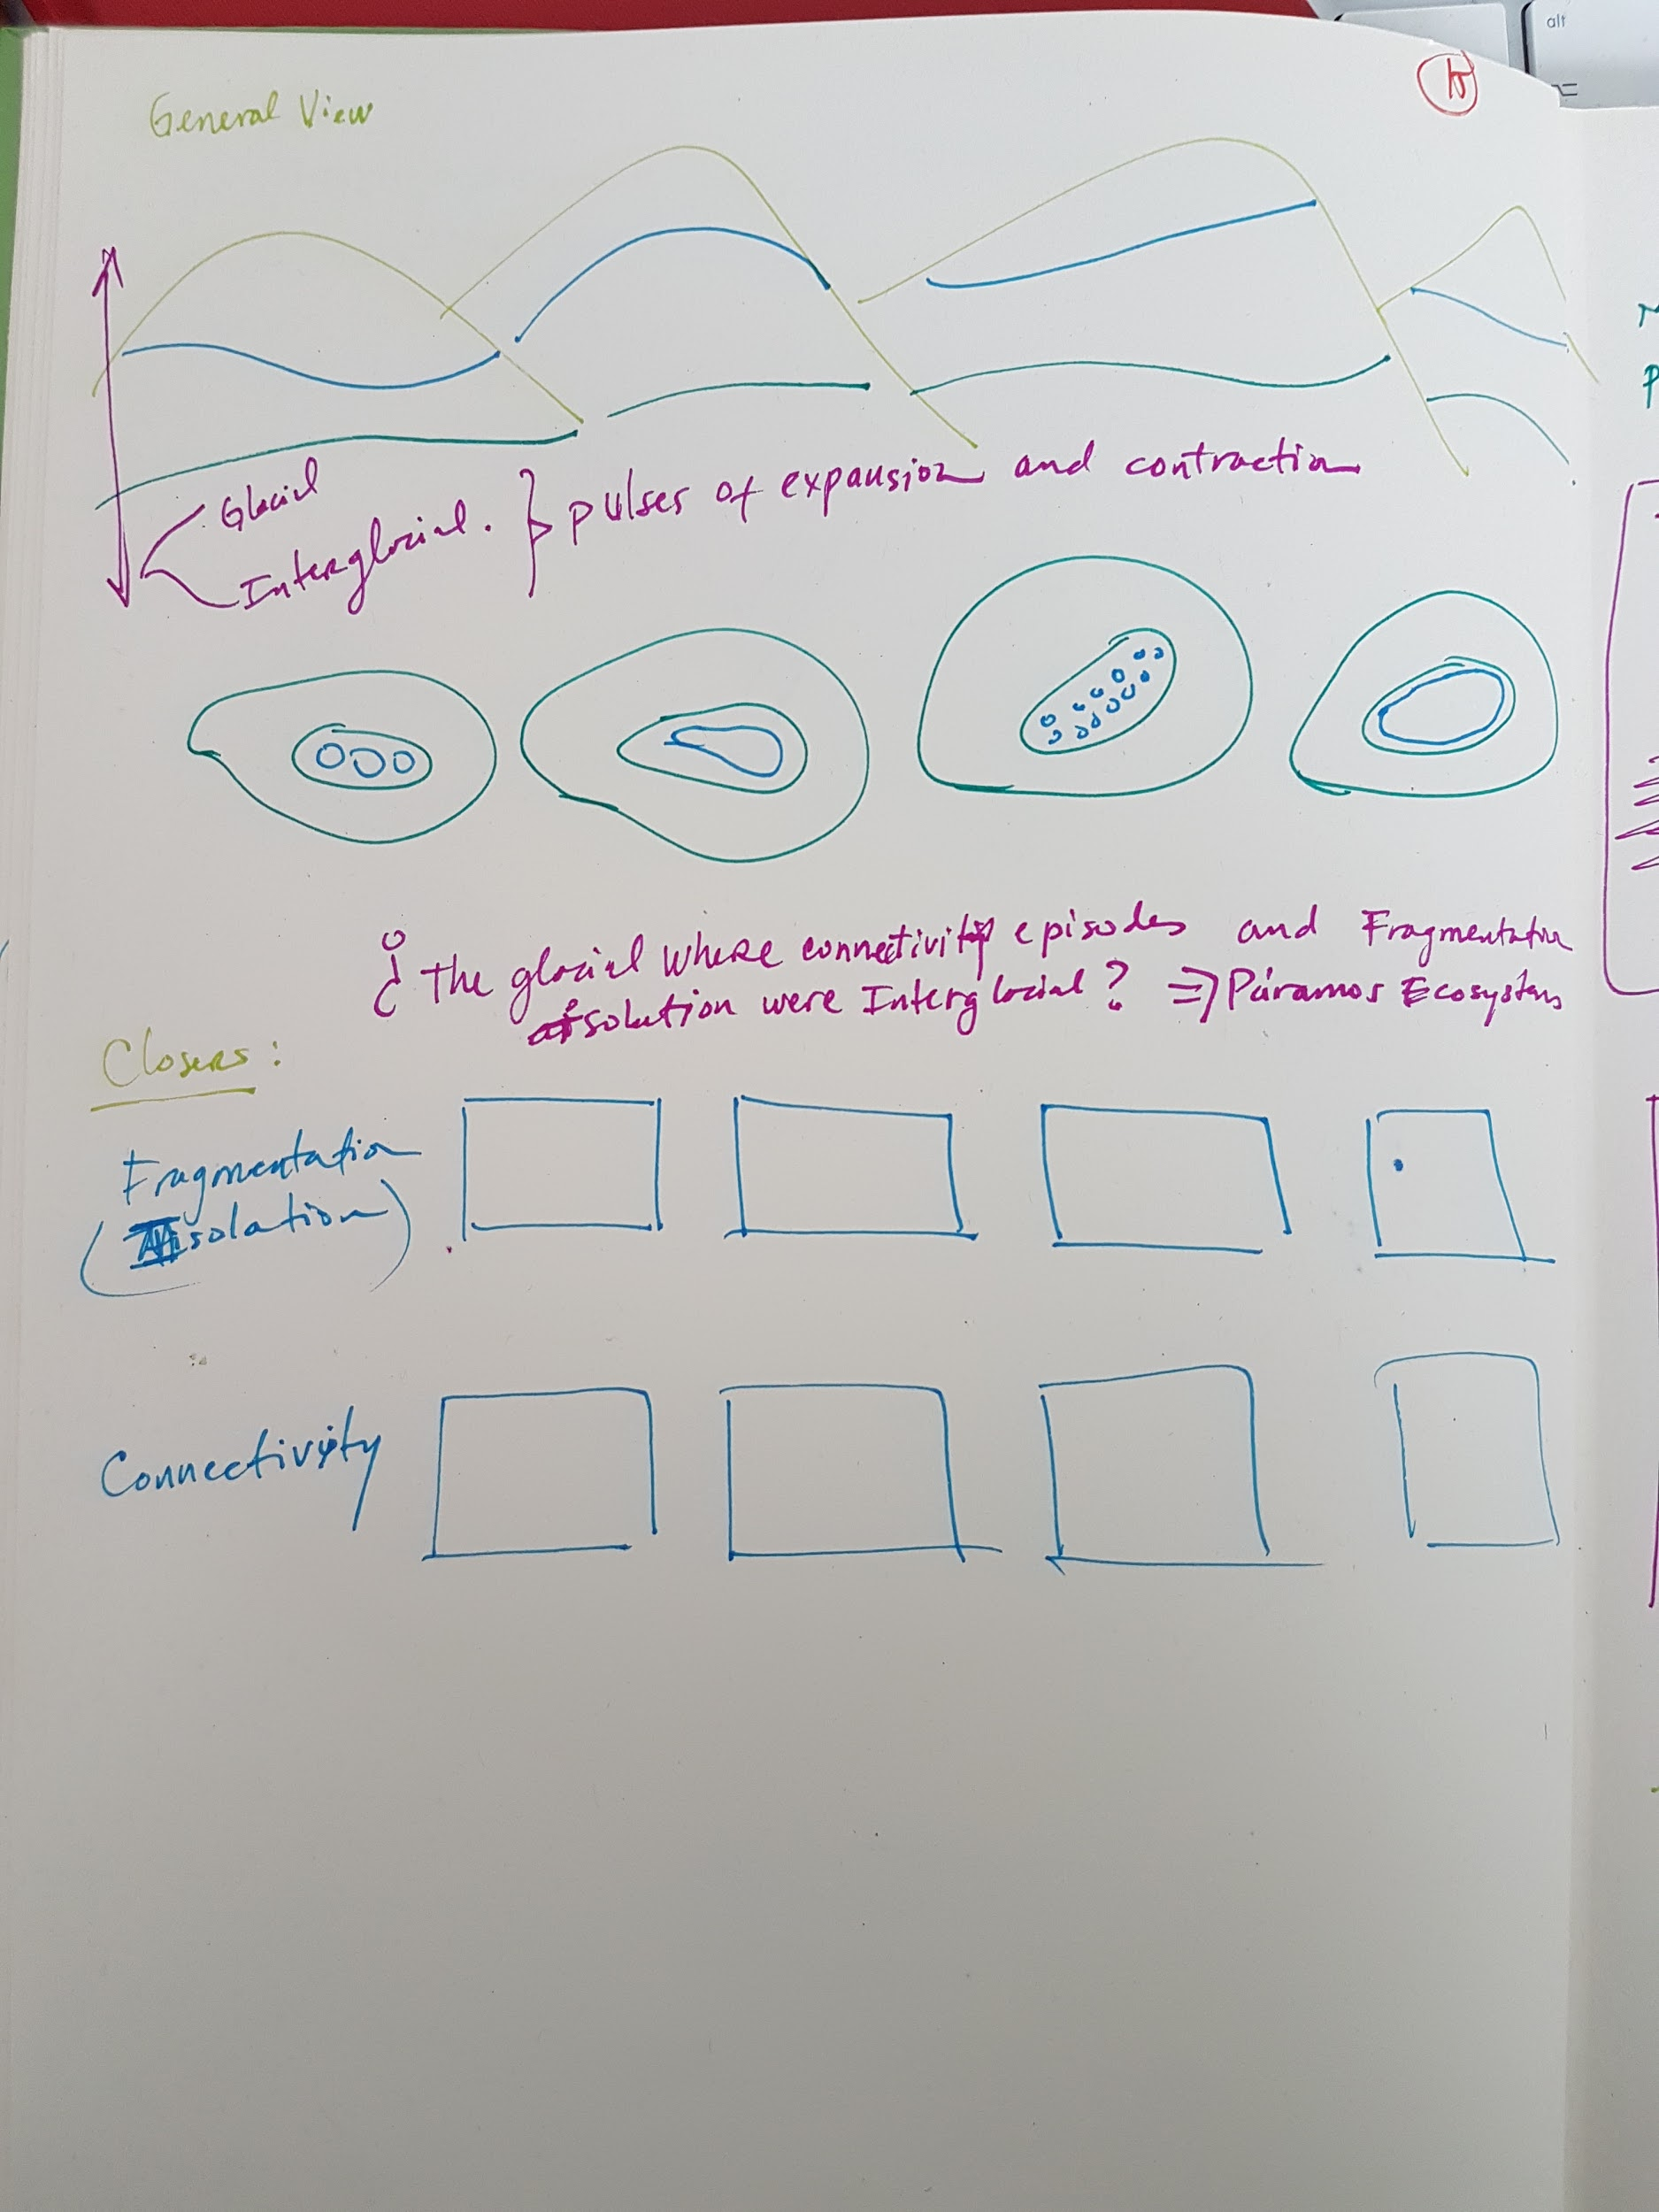 General View
Glacial
Interglacial. } pulses of expansion and contraction
¿ The glacial where connectivity episodes and Fragmentation
isolation were Interglacial? => Páramos Ecosystems
Closers:
Fragmentation
(Isolation)
Connectivity
alt